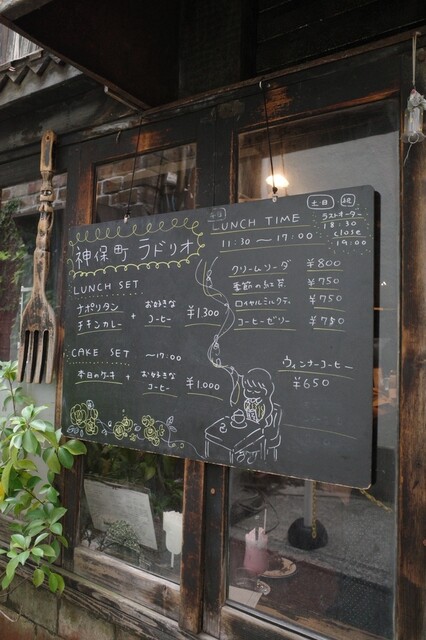 神保町 ラドリオ
LUNCH SET
ナポリタン
チキンカレー
+
お好きな
コーヒー
¥1300
CAKE SET 〜17:00
本日のケーキ
+
お好きな
コーヒー
¥1,000
平日
LUNCH TIME
11:30 〜 17:00
土日・祝
ラストオーダー
18:30
close
19:00
クリームソーダ ¥800
季節の紅茶 ¥750
ロイヤルミルクティ ¥750
コーヒーゼリー ¥750
ウィンナーコーヒー
¥650